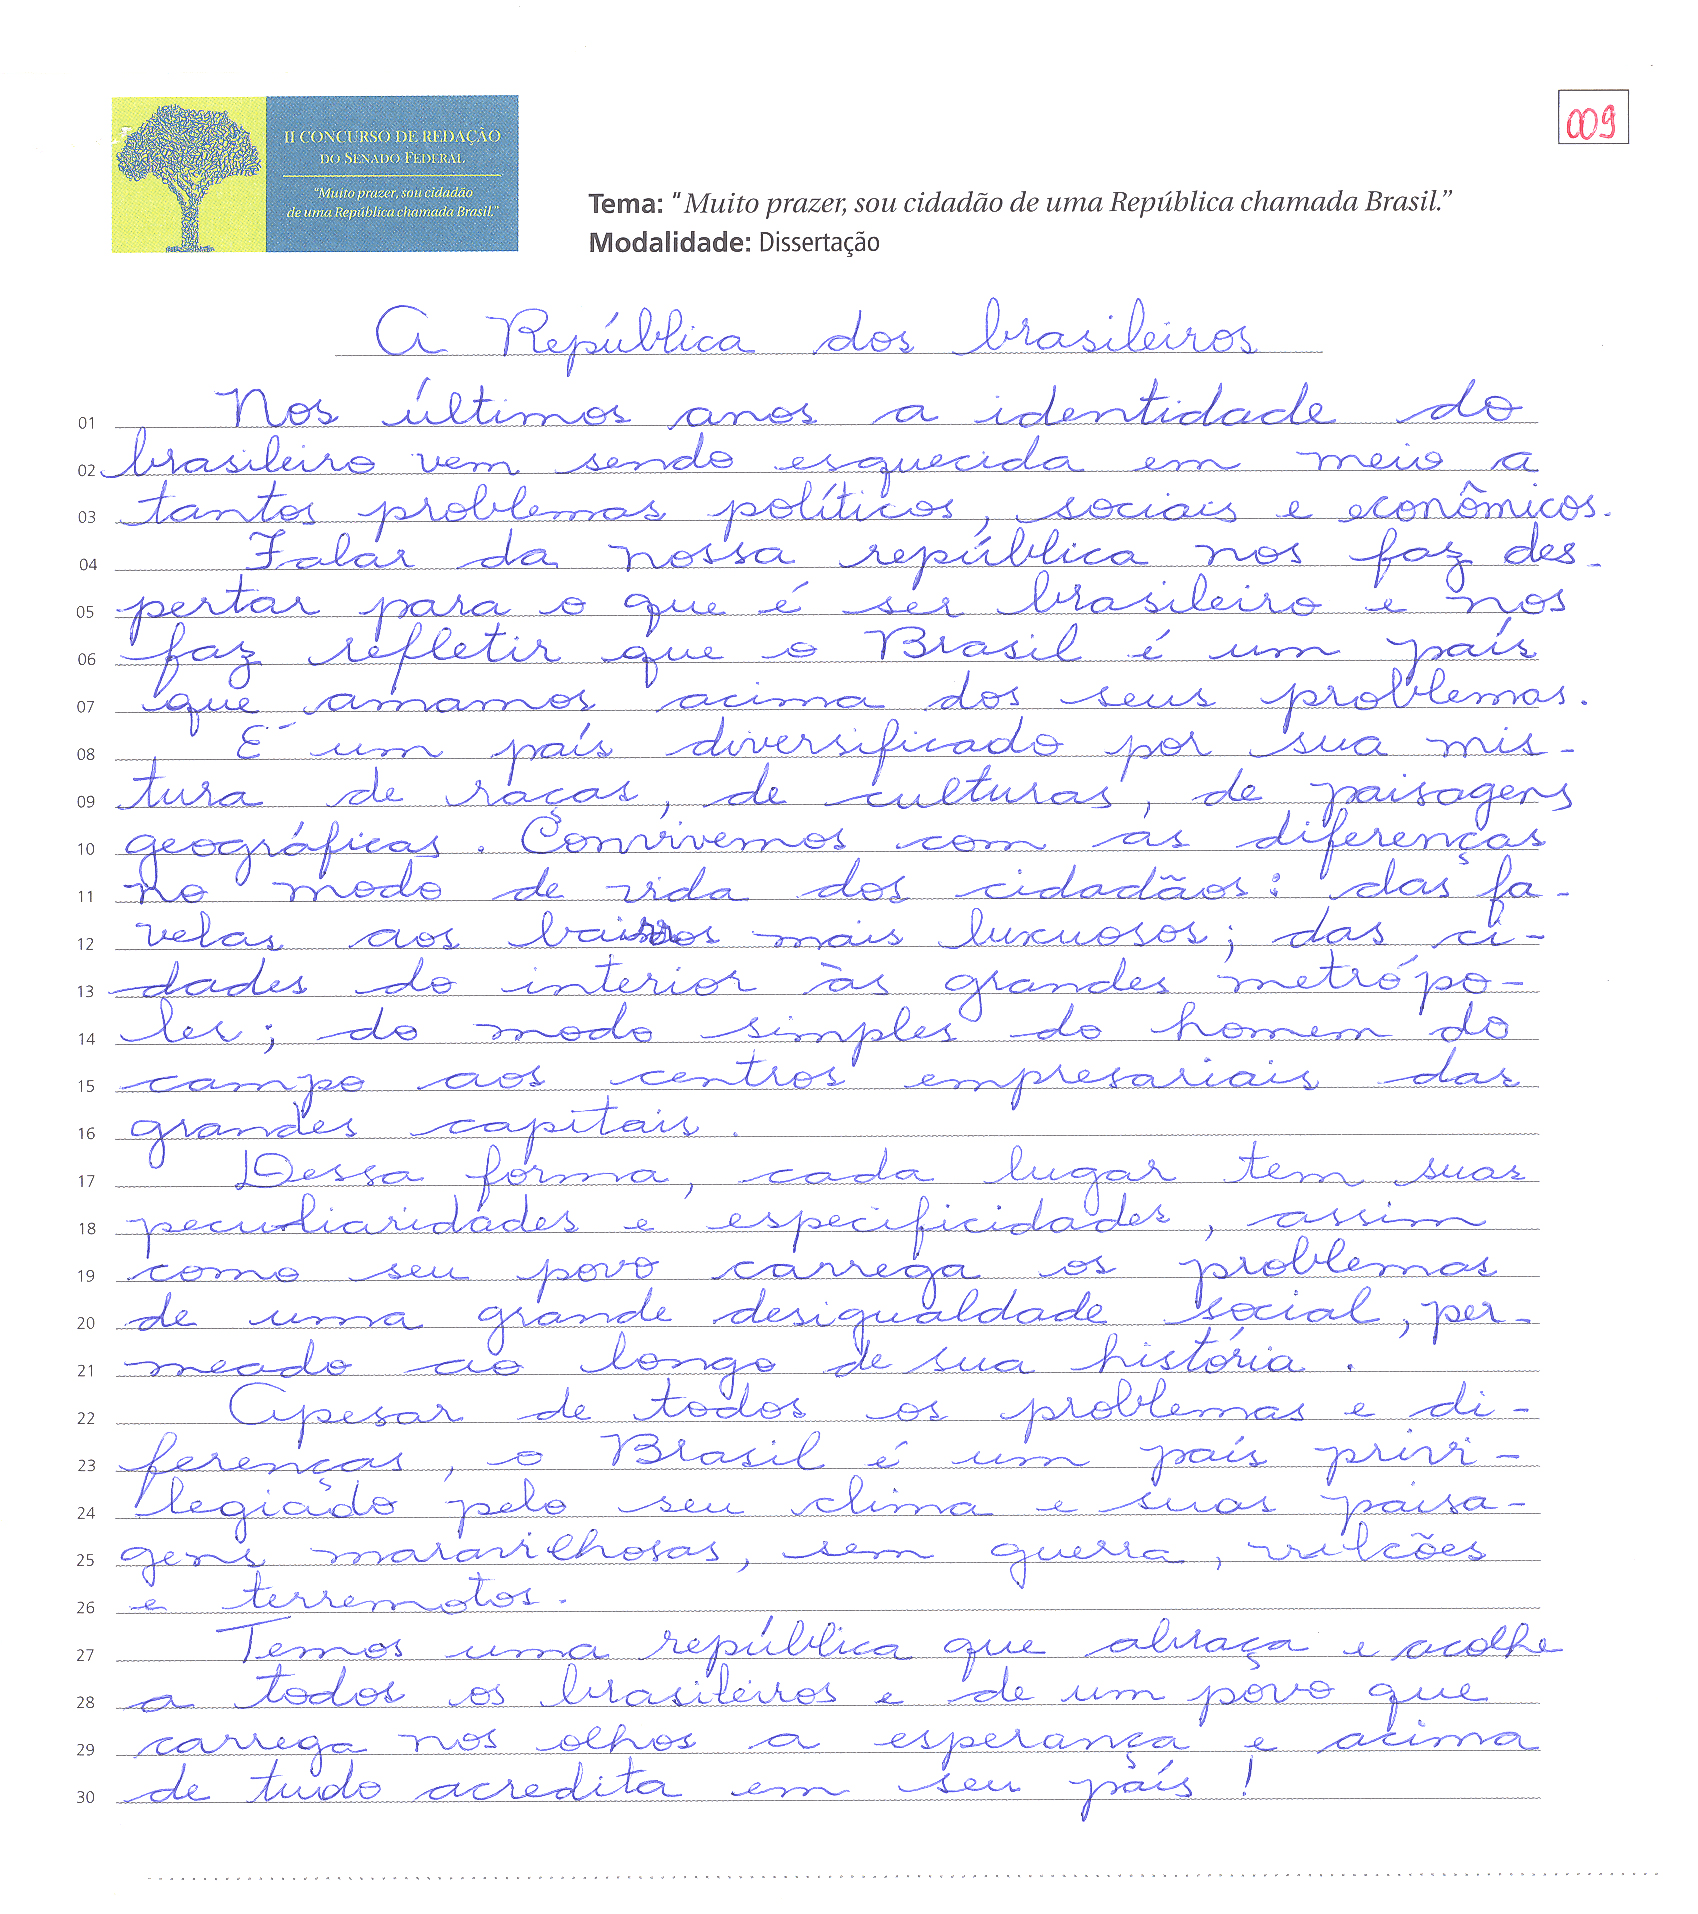 II CONCURSO DE REDAÇÃO
DO SENADO FEDERAL
"Muito prazer, sou cidadão
de uma República chamada Brasil."
009
Tema: "Muito prazer, sou cidadão de uma República chamada Brasil."
Modalidade: Dissertação
A República dos brasileiros
01 Nos últimos anos a identidade do
02 brasileiro vem sendo esquecida em meio a
03 tantos problemas políticos, sociais e econômicos.
04 Falar da nossa república nos faz des-
05 pertar para o que é ser brasileiro e nos
06 faz refletir que o Brasil é um país
07 que amamos acima dos seus problemas.
08 É um país diversificado por sua mis-
09 tura de raças, de culturas, de paisagens
10 geográficas. Convivemos com as diferenças
11 no modo de vida dos cidadãos: das fa-
12 velas aos bairros mais luxuosos; das ci-
13 dades do interior às grandes metrópo-
14 les; do modo simples do homem do
15 campo aos centros empresariais das
16 grandes capitais.
17 Dessa forma, cada lugar tem suas
18 peculiaridades e especificidades, assim
19 como seu povo carrega os problemas
20 de uma grande desigualdade social, per-
21 meado ao longo de sua história.
22 Apesar de todos os problemas e di-
23 ferenças, o Brasil é um país privi-
24 legiado pelo seu clima e suas paisa-
25 gens maravilhosas, sem guerra, vulcões
26 e terremotos.
27 Temos uma república que abraça e acolhe
28 a todos os brasileiros e de um povo que
29 carrega nos olhos a esperança e acima
30 de tudo acredita em seu país!